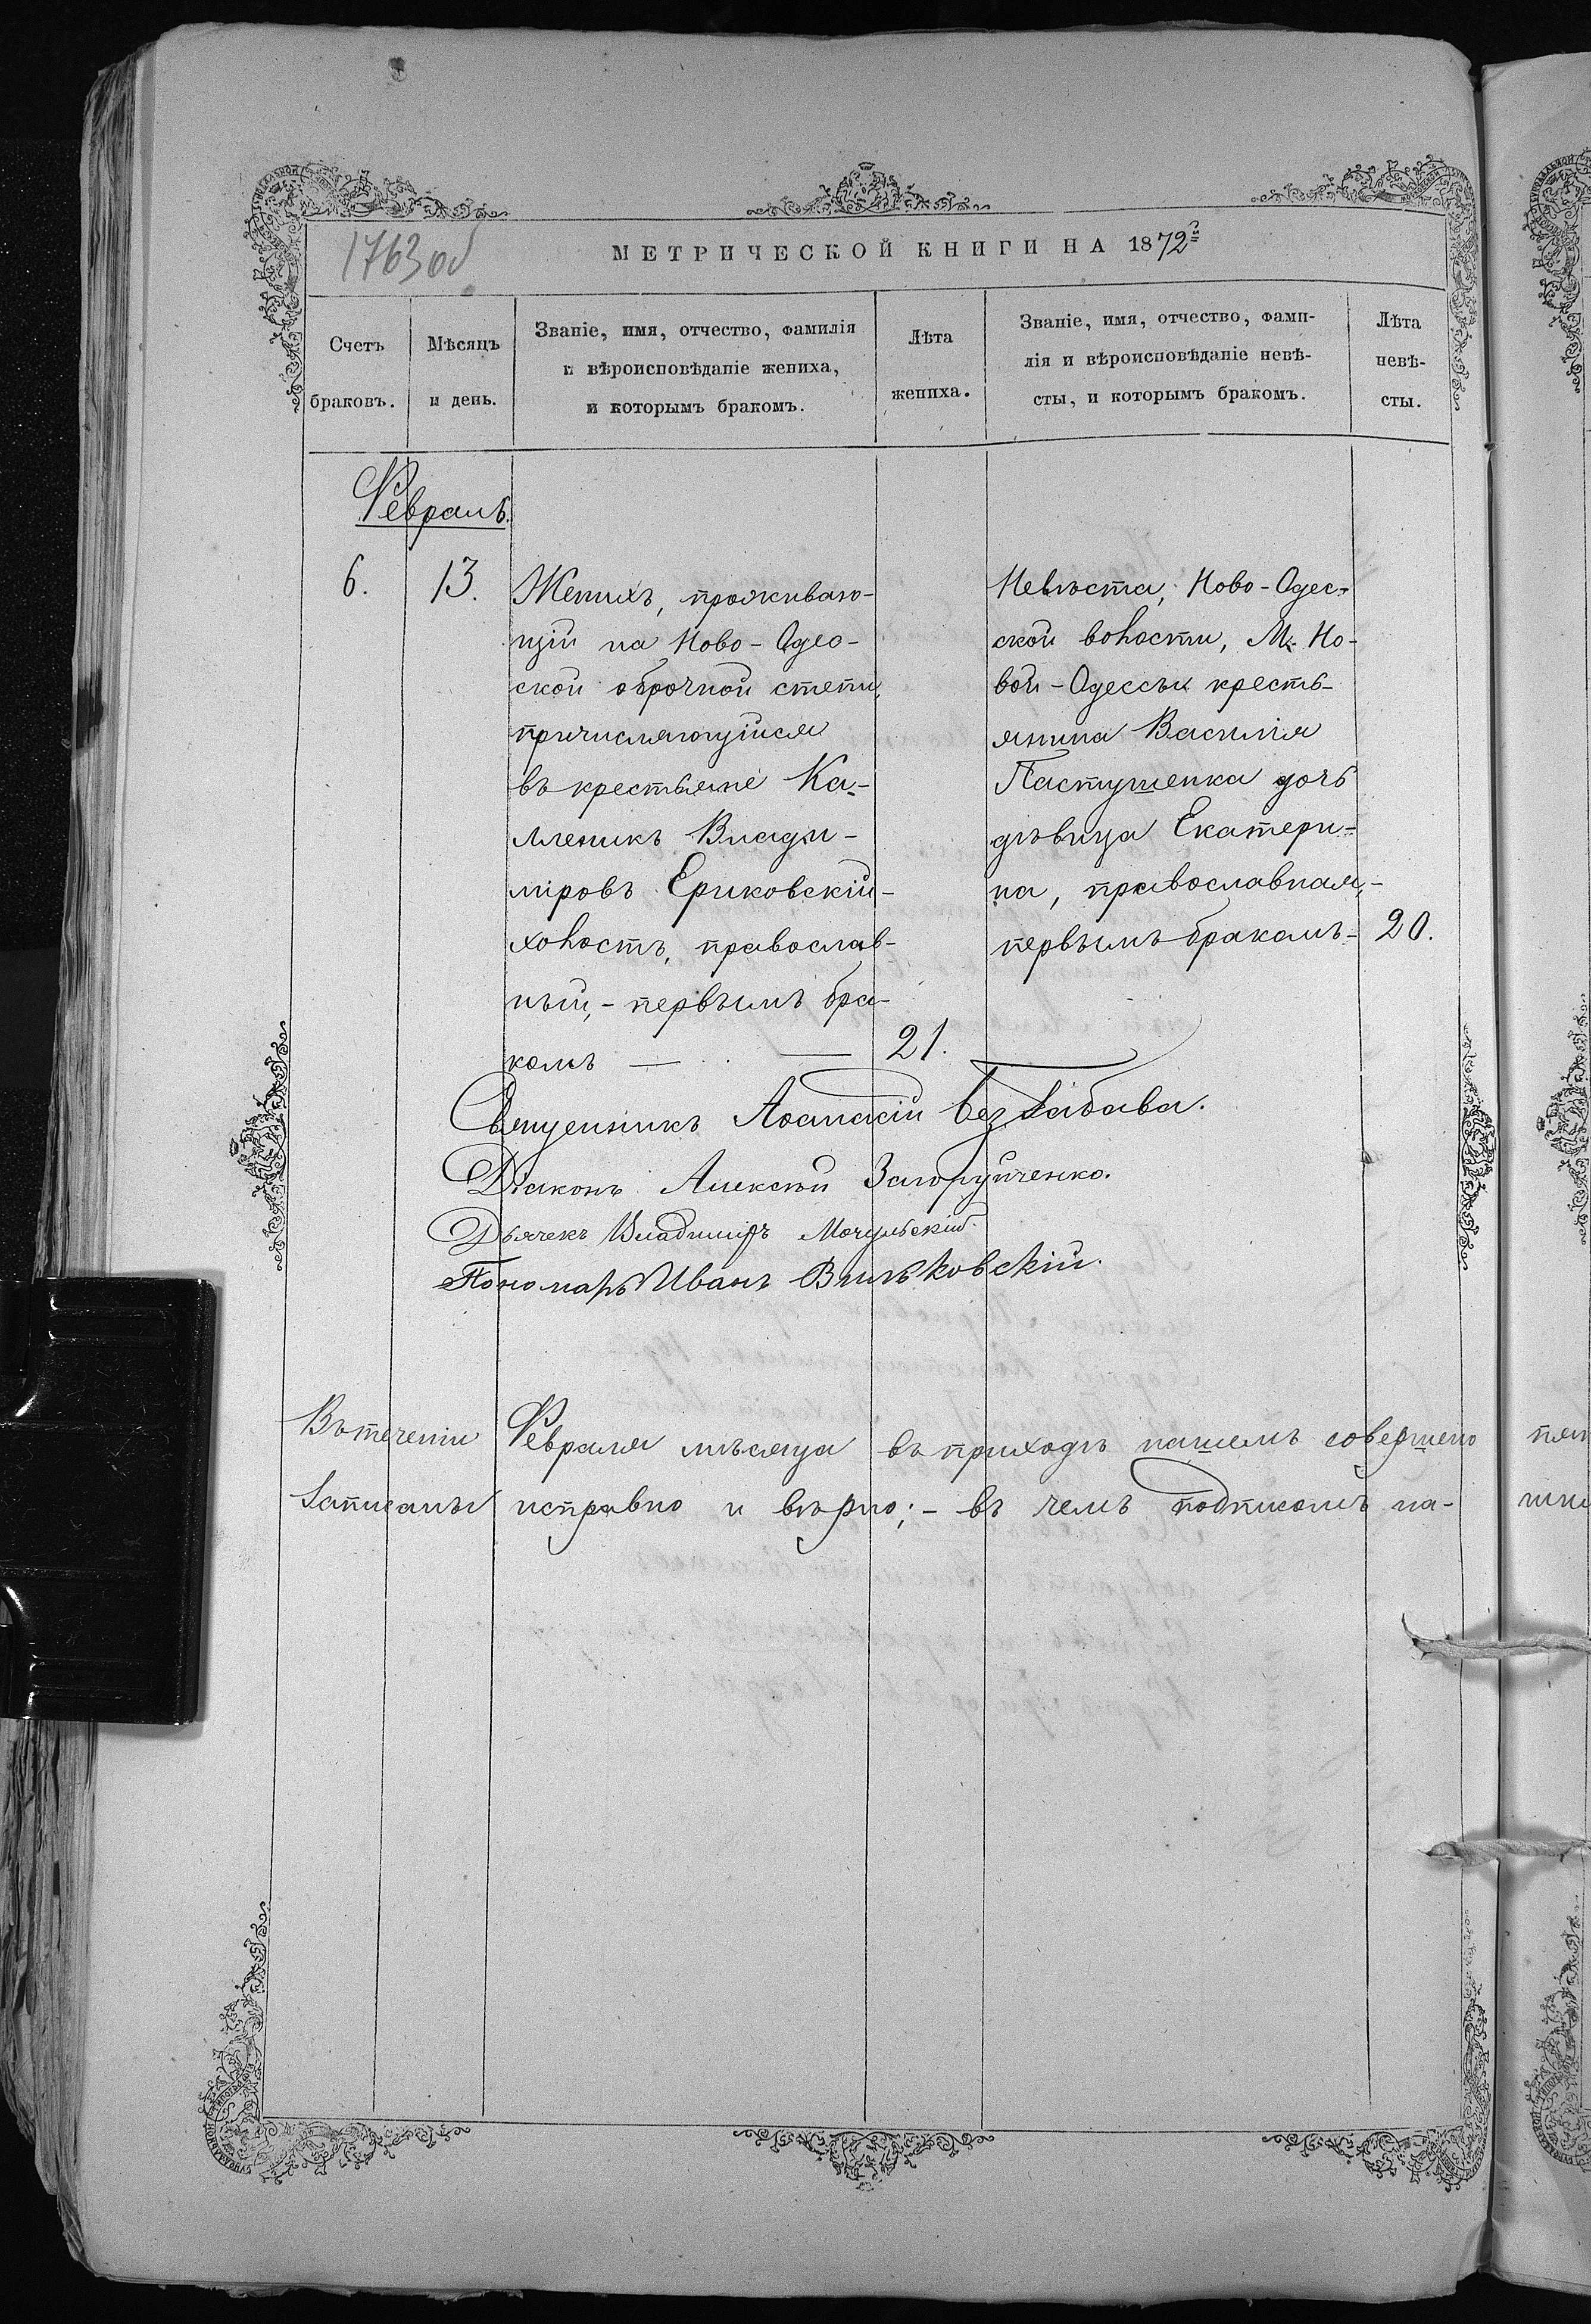 1763 об
МЕТРИЧЕСКОЙ КНИГИ НА 1872й
Счетъ браковъ.
Мѣсяцъ и день.
Званіе, имя, отчество, фамилія
и вѣроисповѣданіе жениха,
и которымъ бракомъ.
Лѣта
жениха.
Званіе, имя, отчество, фами-
лія и вѣроисповѣданіе невѣ-
сты, и которымъ бракомъ.
Лѣта
невѣ-
сты.
Февраль.
6. 13.
Женихъ, проживаю-
щій на Ново-Одес-
ской оброчной степи,
причисляющійся
въ крестьяне Ка-
лленикъ Влади-
міровъ Ериковскій-
холостъ, православ-
ный,- первымъ бра-
комъ — — 21.
Невѣста, Ново-Одес-
ской волости, М. Но-
вой-Одессы кресть-
янина Василія
Пастушенка дочь
дѣвица Екатери-
на, православная,-
первымъ бракомъ- 20.
Священникъ Аѳанасій Беззабава.
Діаконъ Алексѣй Загоруйченко.
Дьячекъ Владиміръ Мочульскій.
Пономарь Иванъ Вильковскій.
Въ теченіи Февраля мѣсяца въ приходѣ нашемъ совершено
Записаны исправно и вѣрно;- въ чемъ подписомъ на-